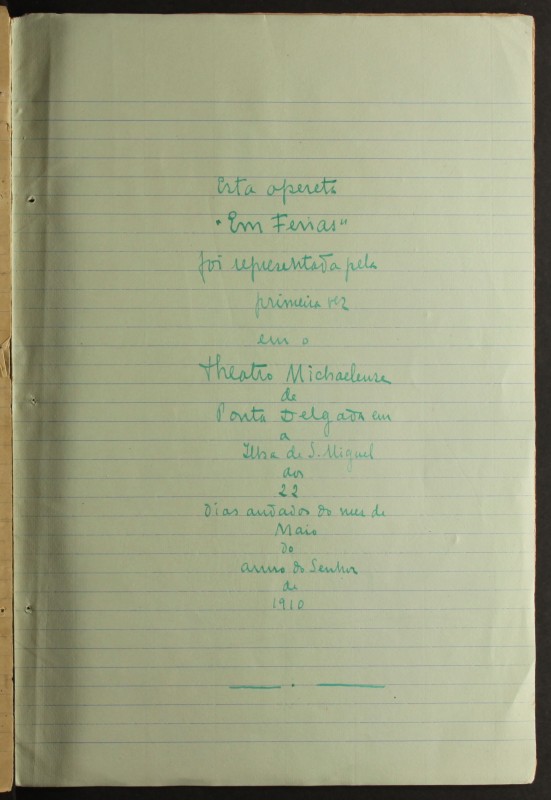 Esta opereta
"Em Ferias"
foi representada pela
primeira vez
em o
Theatro Michaelense
de
Ponta Delgada em
a
Ilha de S. Miguel
dos
22
Dias andados do mez de
Maio
do
anno do Senhor
de
1910